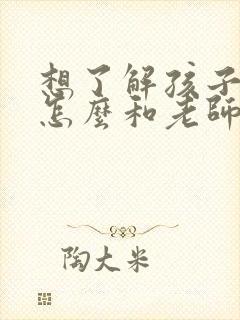 想了解孩子
怎麼和老師
陶大米